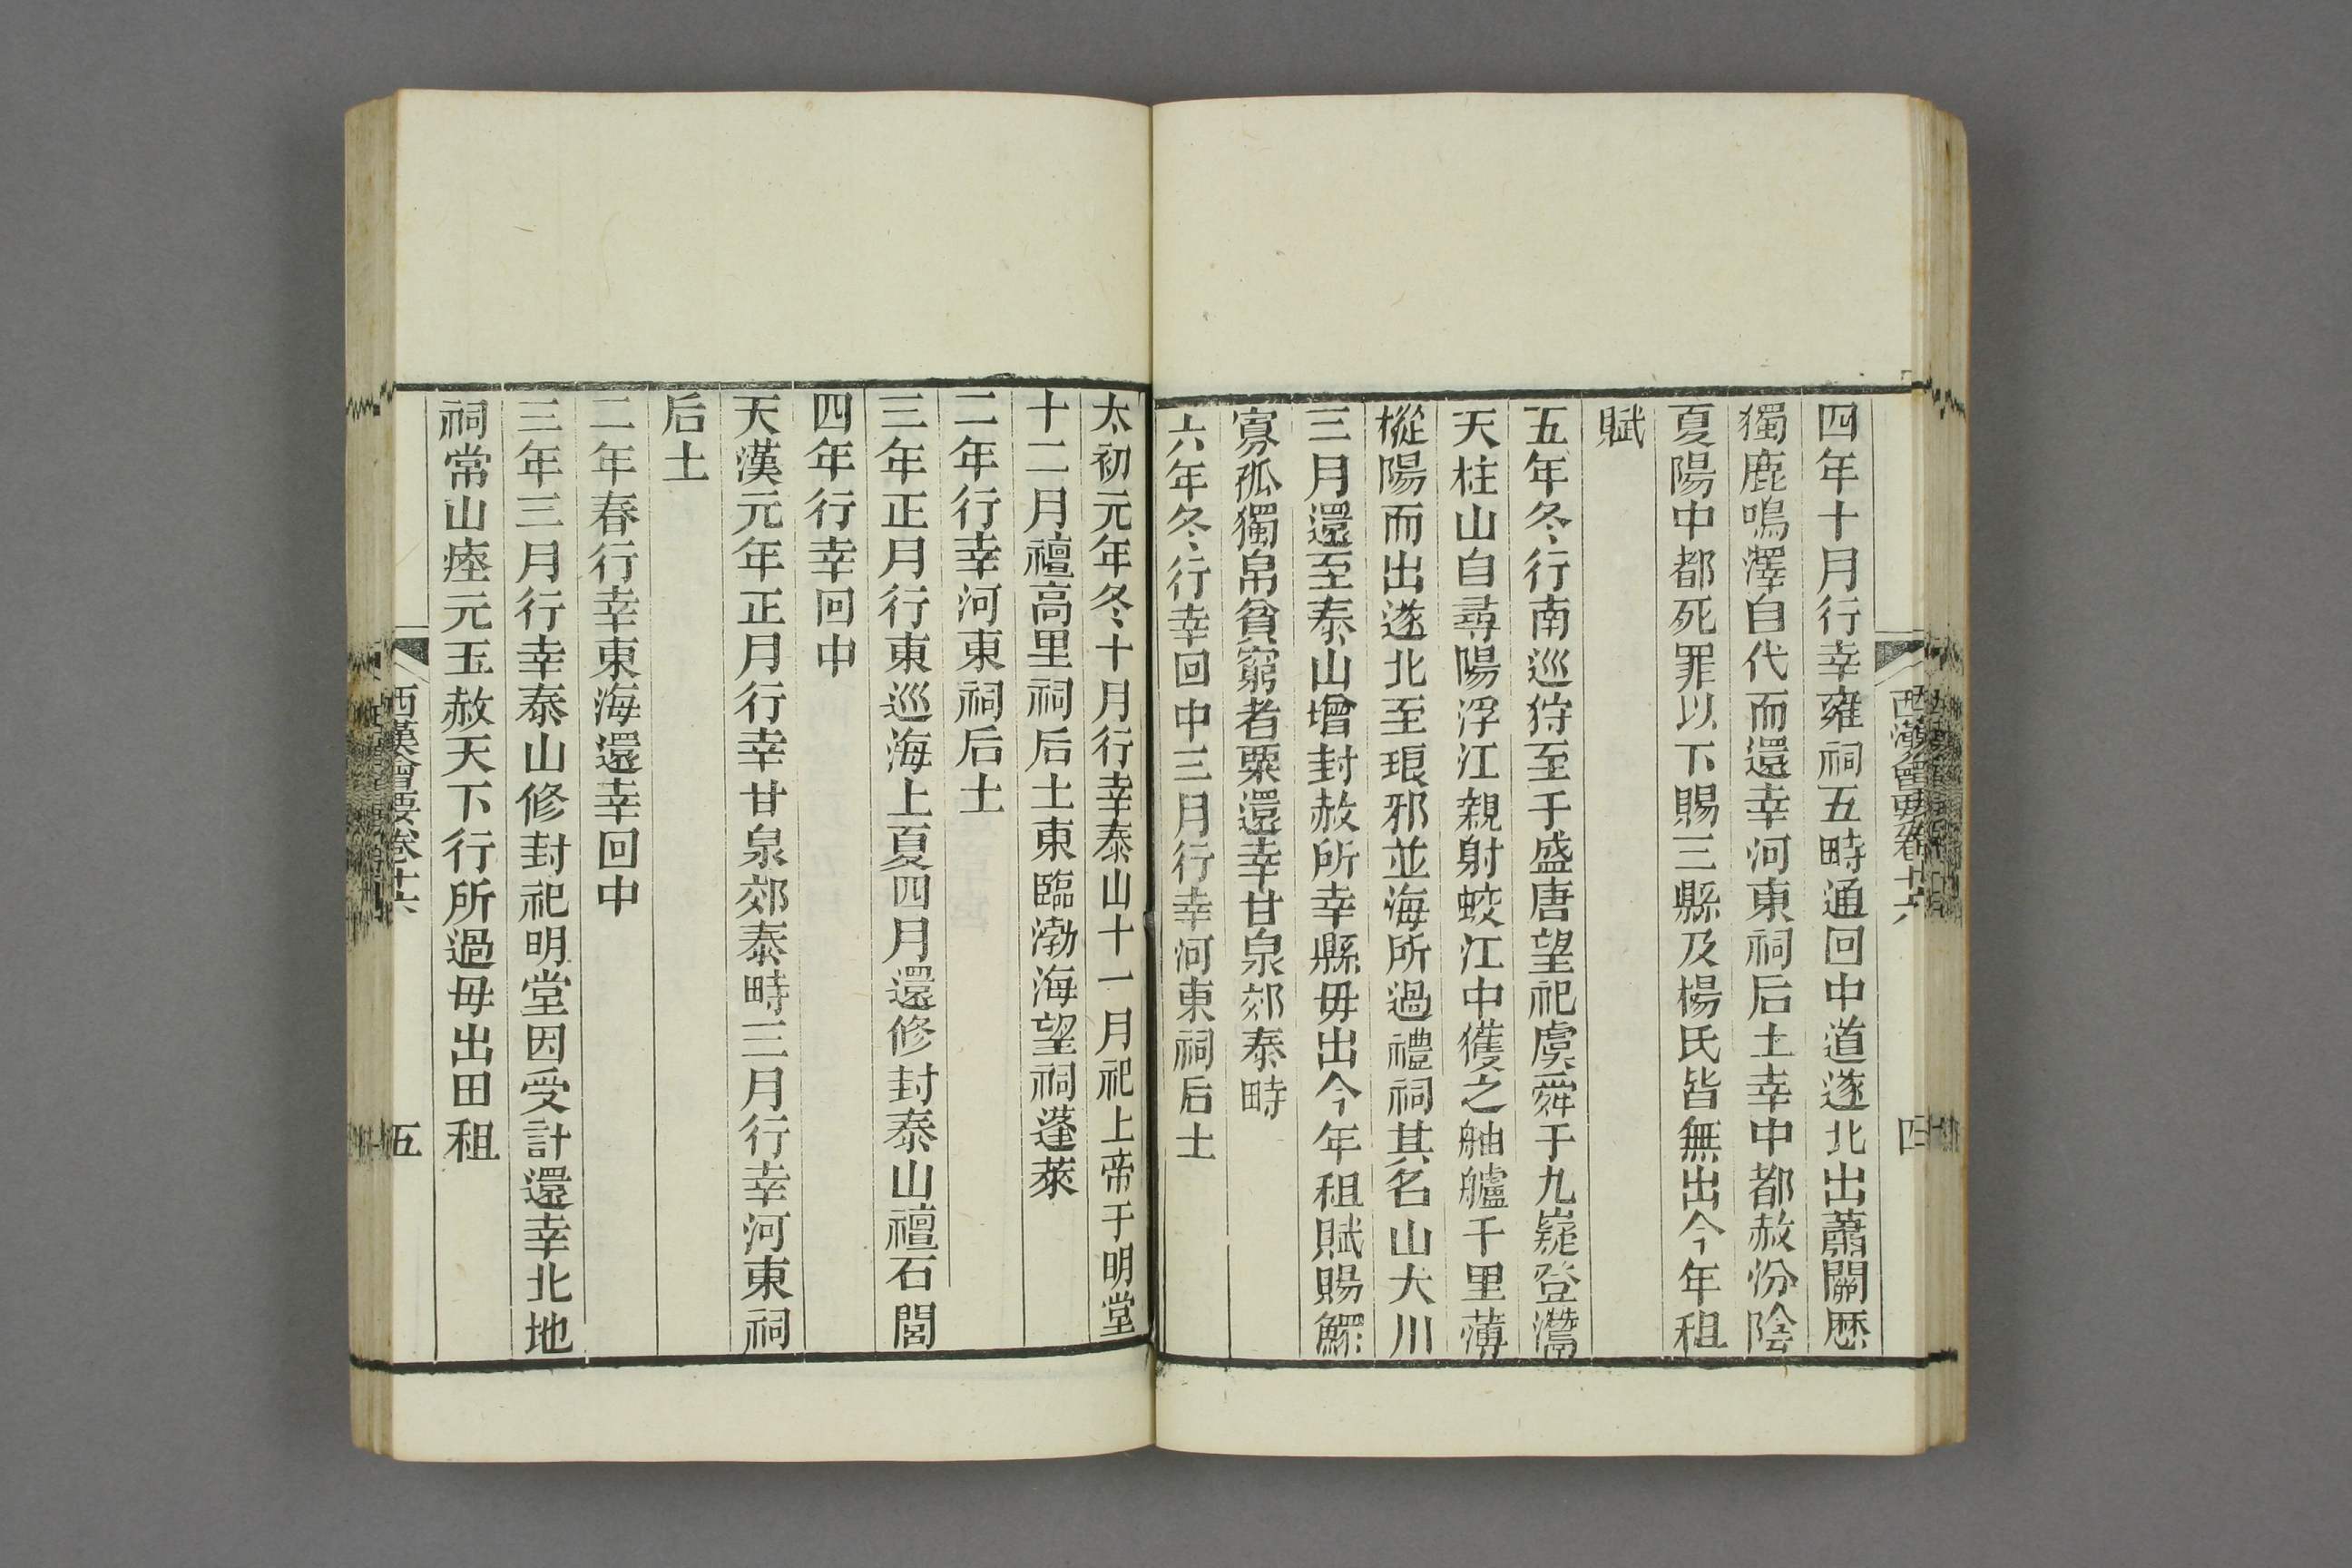 西漢會要卷十六
四
四年十月行幸雍祠五畤通回中道遂北出蕭關歷
獨鹿鳴澤自代而還幸河東祠后土幸中都赦汾陰
夏陽中都死罪以下賜三縣及楊氏皆無出今年租
賦
五年冬行南巡狩至于盛唐望祀虞舜于九嶷登灊
天柱山自尋陽浮江親射蛟江中獲之舳艫千里薄
樅陽而出遂北至琅邪並海所過禮祠其名山大川
三月還至泰山增封赦所幸縣毋出今年租賦賜鰥
寡孤獨帛貧窮者粟還幸甘泉郊泰畤
六年冬行幸回中三月行幸河東祠后土
太初元年冬十月行幸泰山十一月祀上帝于明堂
十二月禪高里祠后土東臨渤海望祠蓬萊
二年行幸河東祠后土
三年正月行東巡海上夏四月還修封泰山禪石閭
四年行幸回中
天漢元年正月行幸甘泉郊泰畤三月行幸河東祠
后土
二年春行幸東海還幸回中
三年三月行幸泰山修封祀明堂因受計還幸北地
祠常山瘞元玉赦天下行所過毋出田租
西漢會要卷十六
五